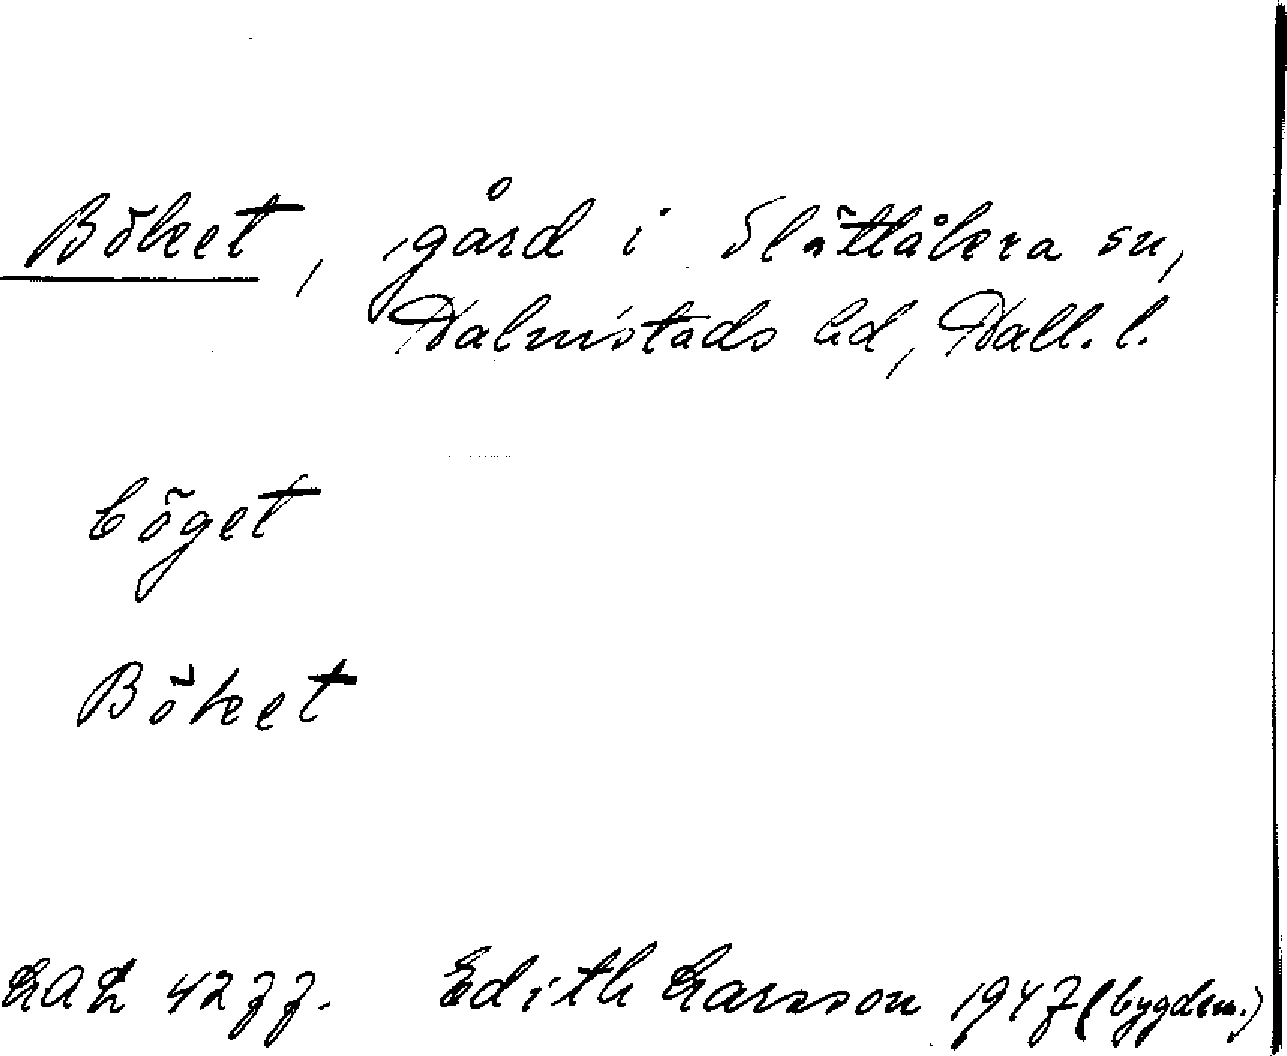 Böket, gård i Slättåkra sn,
Halmstads hd, Hall. l.
böget
Böket
LAL 4277. Edith Larsson 1947 (bygdem.)